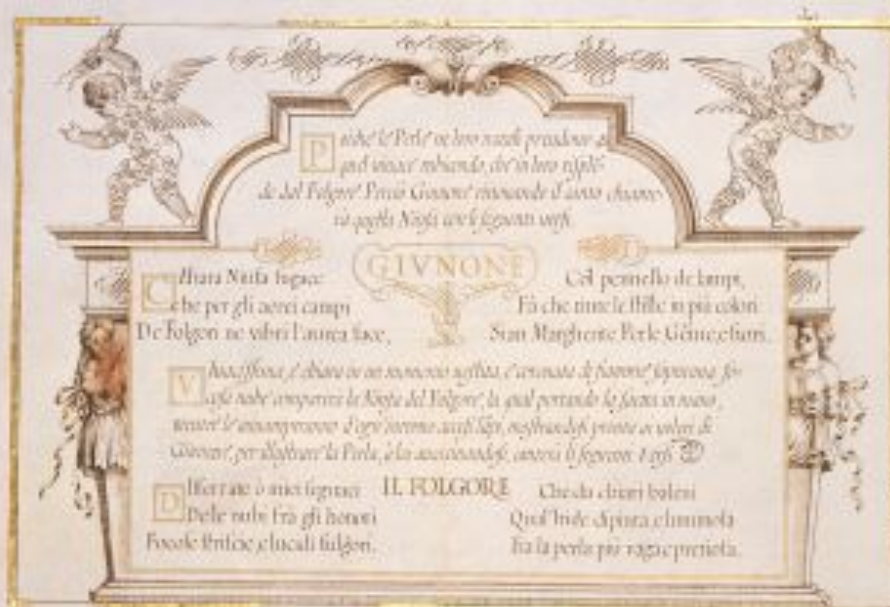 Poiche le Perle ne loro natali prendono da
quel vivace rubicondo, che in loro risplē-
de dal Folgore. Perciò Giunone rimirando d'auto chiame-
rà quella Ninfa con li seguenti versi.
GIVNONE
Chiara Ninfa fugace
che per gli aerei campi
De Folgori ne vibri l'aurea face,
Cól pennello de lampi,
Fà che tinte le stille in più colori
Sian Margherite Perle Gēme, e fiori.
e chiara in un momento vestita, e coronata di fiamme sopra una fo-
nube comparirà la Ninfa del Folgore, la qual portando la in mano,
mentre le d'ogni intorno accesi lāpi, mostrandosi pronta a voleri di
Giunone, per illustrare la Perla, à lei avvicinandosi, canterà li seguenti Versi
IL FOLGORE
Disserrate ò miei seguaci
Delle nubi frà gli honori
Focose strisce, e lucidi fulgori.
Che da chiari baleni
Qual' Iride dipinta, e luminosa
Fia la perla più vaga e pretiosa.